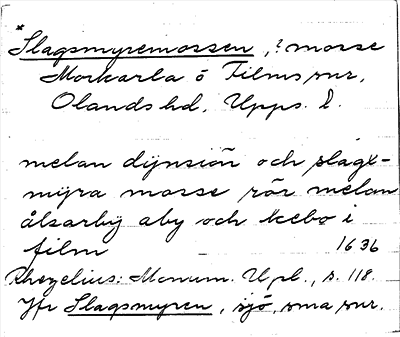 *
Slagsmyremossen, ? mosse
Morkarla o Films snr,
Olands hd, Upps. l.
melan dijnsiön och slagx-
myra mosse rör melan
älsarbij aby och kebo i
film 1636
Rhezelius: Monum. Upl., s. 118.
Jfr Slagsmyren, sjö, sma snr.